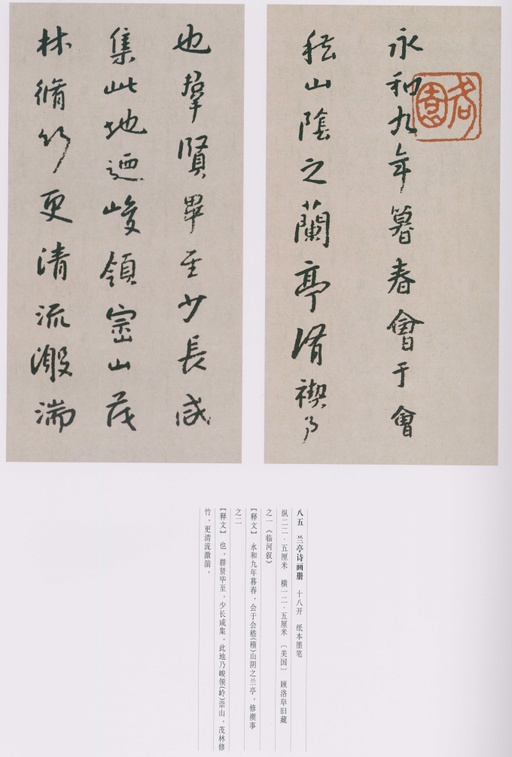 永和九年暮春會于會
嵇山陰之蘭亭脩禊事
也羣賢畢至少長咸
集此地迺峻領崈山茂
林脩竹更清流激湍
八五 兰亭诗画册 十八开 纸本墨笔
纵二二·五厘米 横一二·五厘米 〔美国〕 顾洛阜旧藏
之一《临河叙》
【释文】 永和九年暮春,会于会嵇(稽)山阴之兰亭,修禊事
之二
【释文】 也,群贤毕至,少长咸集,此地乃峻领(岭)崇山,茂林修
竹,更清流激湍。